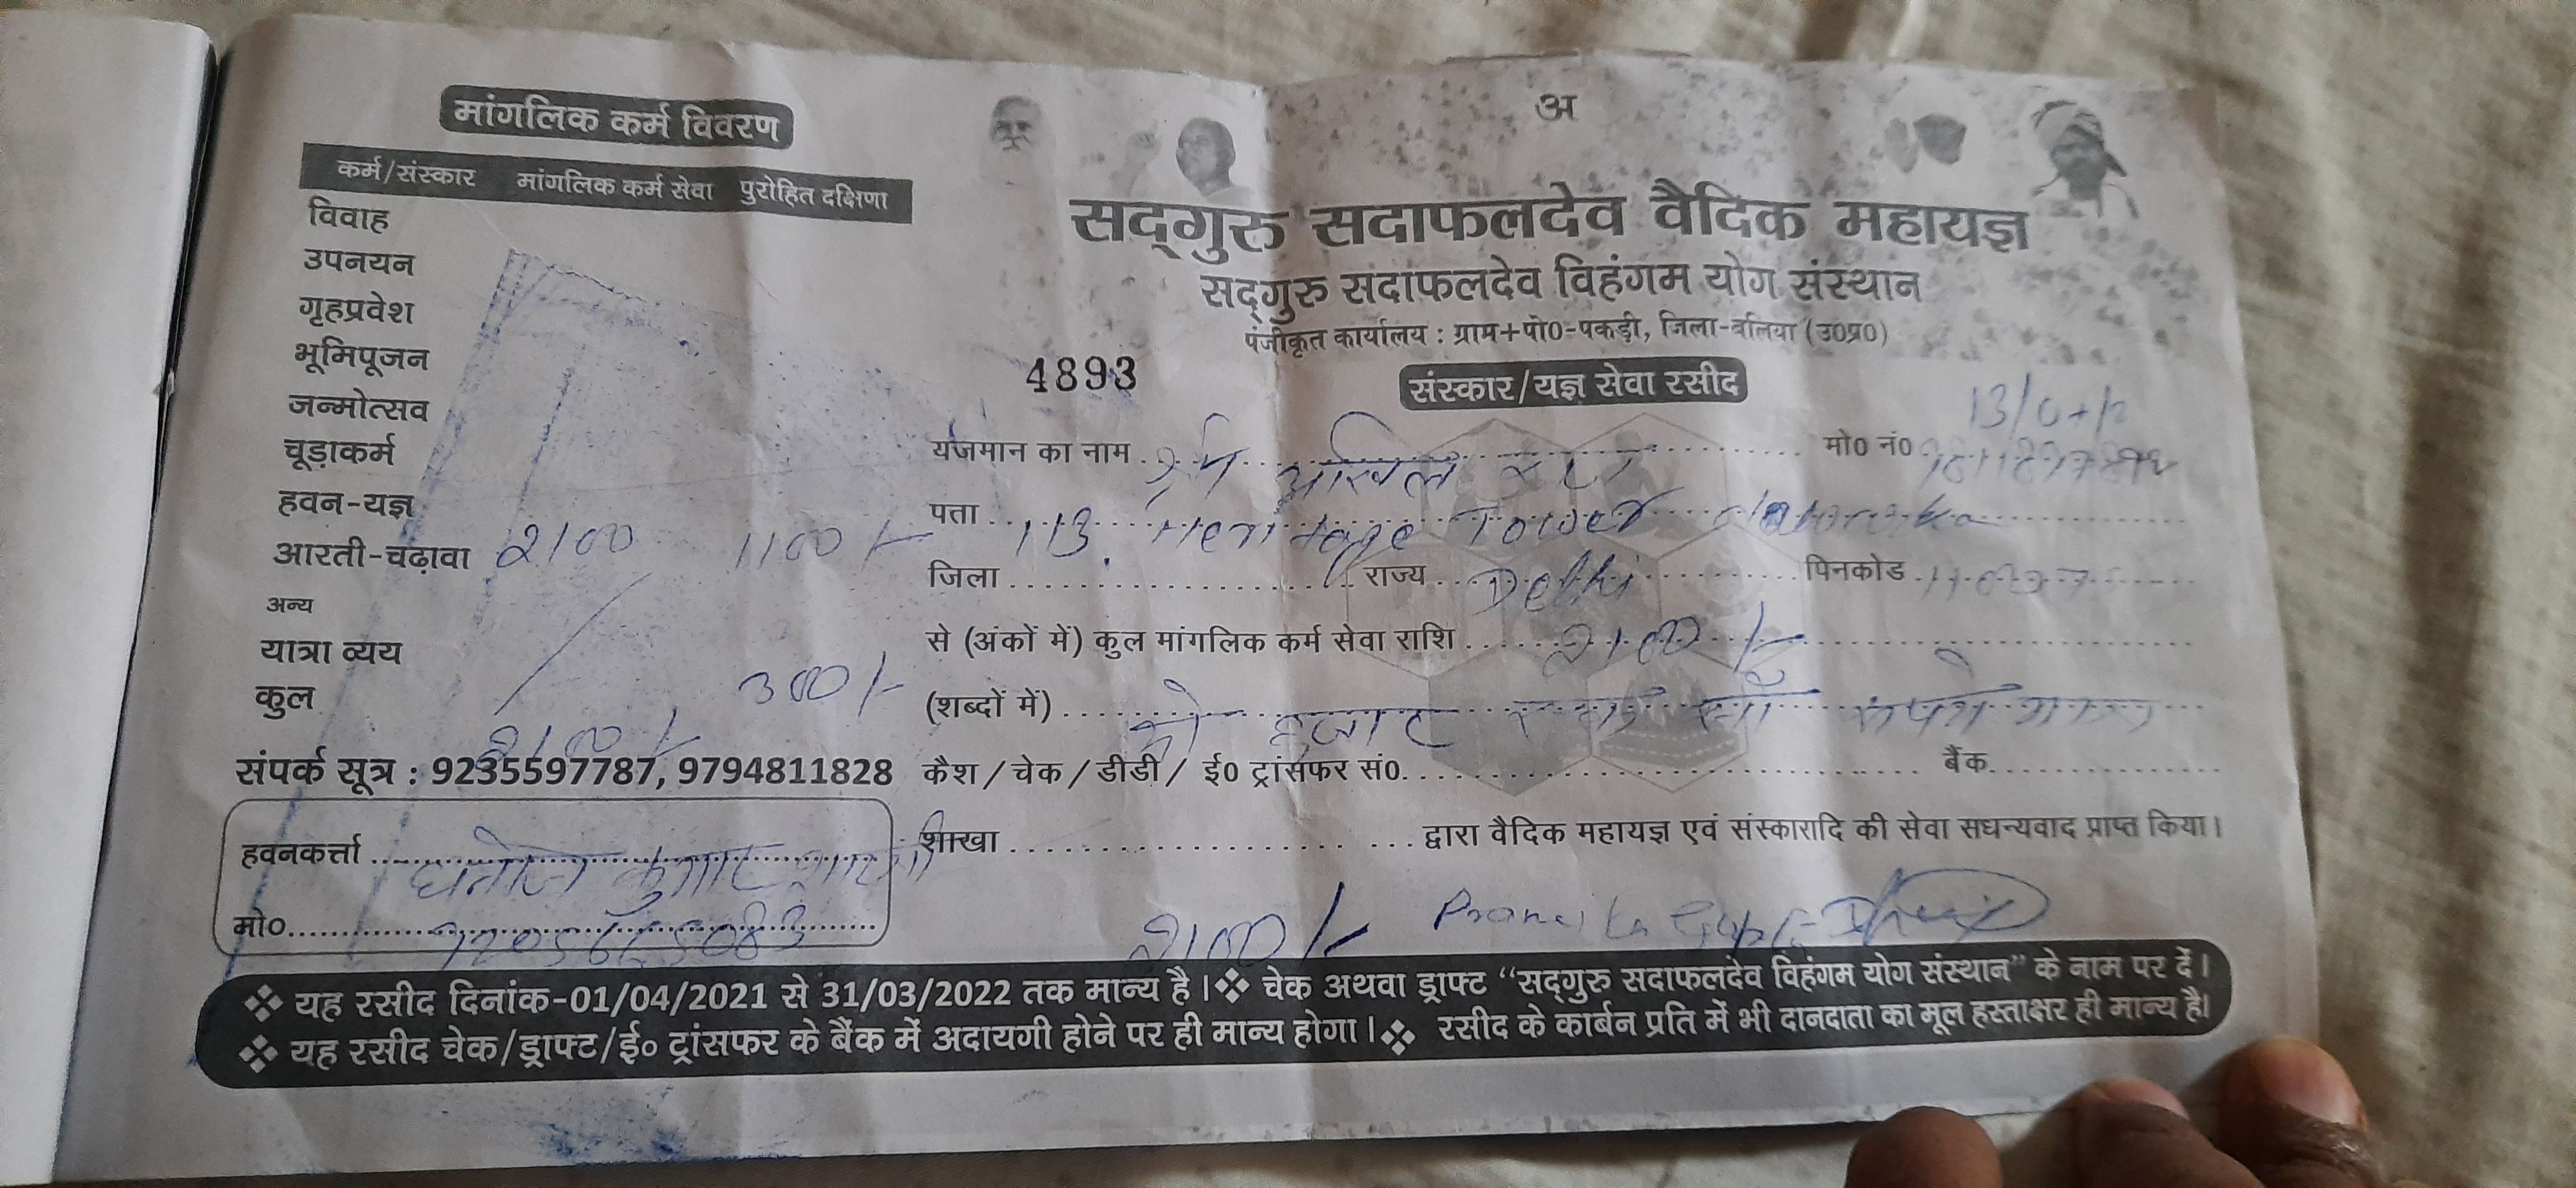 मांगलिक कर्म विवरण
कर्म/संस्कार मांगलिक कर्म सेवा पुरोहित दक्षिणा
विवाह
उपनयन
गृहप्रवेश
भूमिपूजन
जन्मोत्सव
चूड़ाकर्म
हवन-यज्ञ
आरती-चढ़ावा 2100 1100/-
अन्य
यात्रा व्यय
300/-
कुल
2100/-
संपर्क सूत्र : 9235597787, 9794811828
हवनकर्त्ता कुमार
मो०
अ
सद्गुरु सदाफलदेव वैदिक महायज्ञ
सद्गुरु सदाफलदेव विहंगम योग संस्थान
पंजीकृत कार्यालय : ग्राम+पो0-पकड़ी, जिला-बलिया (उ0प्र0)
4893
संस्कार/यज्ञ सेवा रसीद
यजमान का नाम श्री मो0 नं0
पता 113, Heritage Tower
जिला राज्य Delhi पिनकोड
से (अंकों में) कुल मांगलिक कर्म सेवा राशि 2100/-
(शब्दों में) दो हजार एक सौ रूपये मात्र
कैश / चेक / डीडी / ई0 ट्रांसफर सं0. बैंक
शाखा द्वारा वैदिक महायज्ञ एवं संस्कारादि की सेवा सधन्यवाद प्राप्त किया।
2100/-
❖ यह रसीद दिनांक-01/04/2021 से 31/03/2022 तक मान्य है। ❖ चेक अथवा ड्राफ्ट “सद्गुरु सदाफलदेव विहंगम योग संस्थान” के नाम पर दें।
❖ यह रसीद चेक/ड्राफ्ट/ई० ट्रांसफर के बैंक में अदायगी होने पर ही मान्य होगा। ❖ रसीद के कार्बन प्रति में भी दानदाता का मूल हस्ताक्षर ही मान्य है।